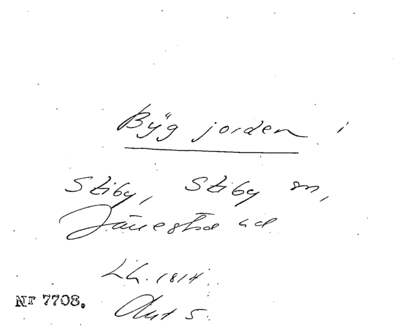 Byg jorden i
Stiby, Stiby sn,
Järrestad hd
LL. 1814.
Akt 5.
Nr 7708.